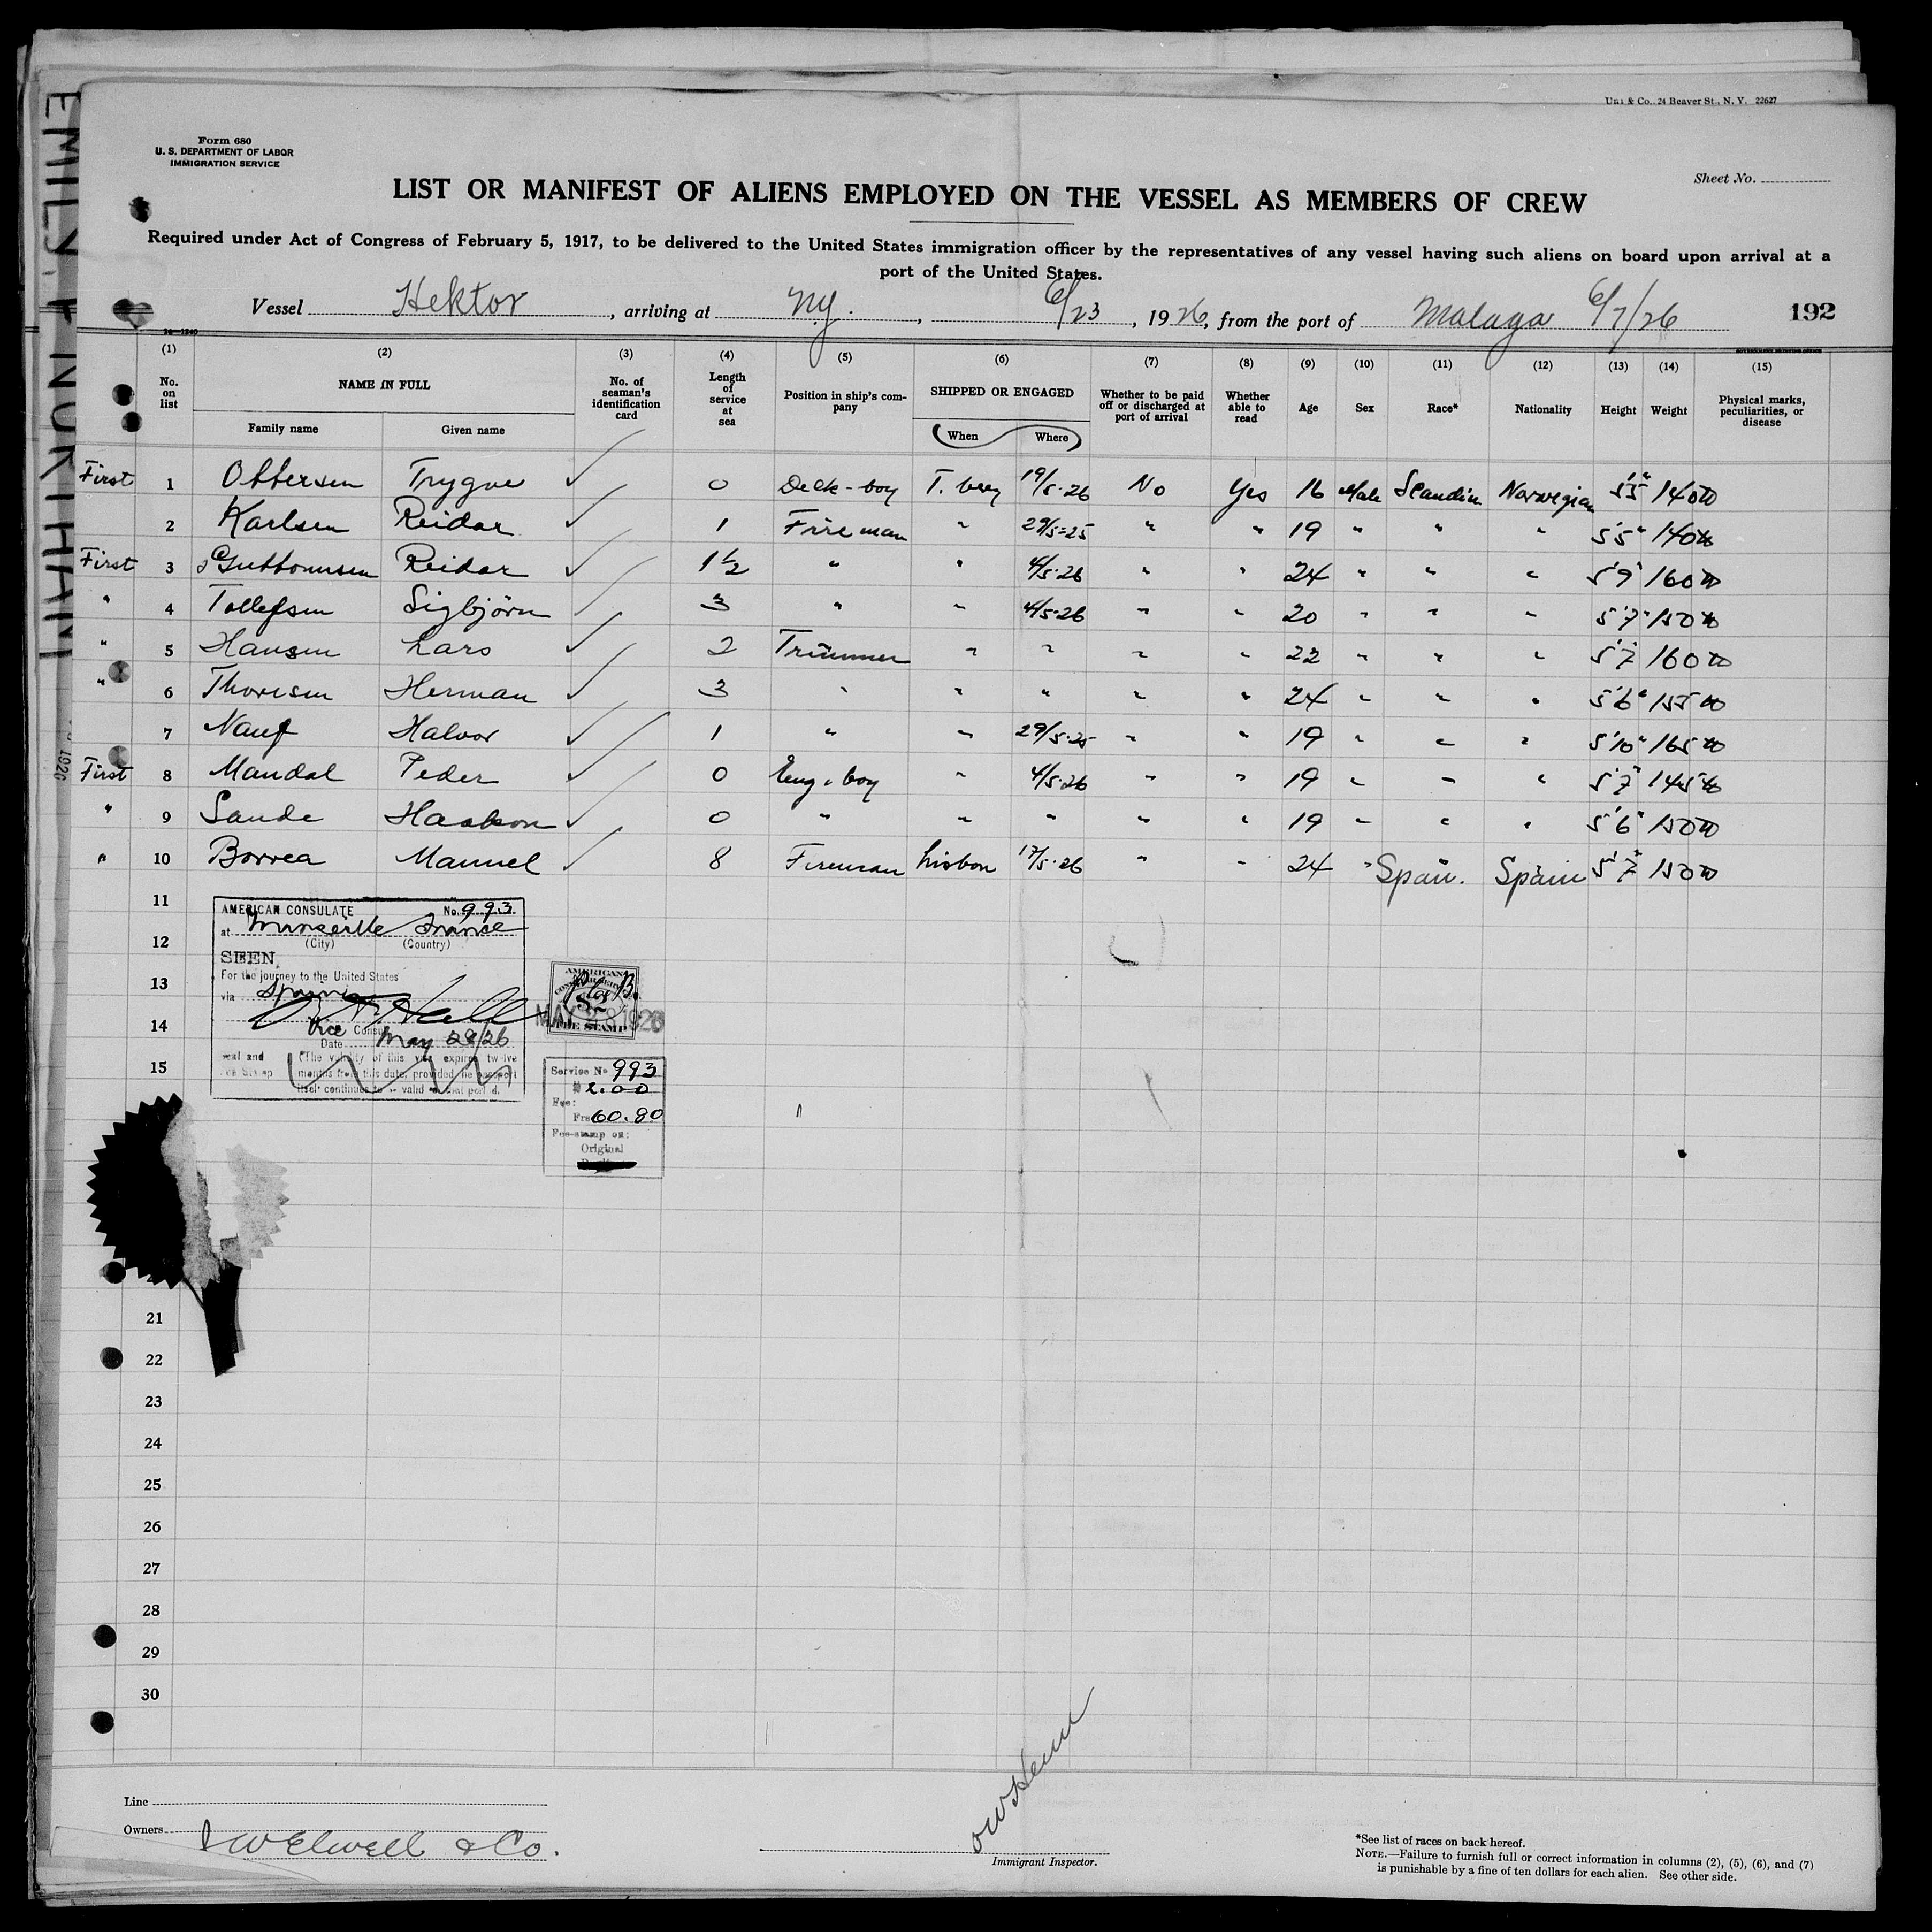 Uhl & Co., 24 Beaver St., N. Y. 22627
EMILY F NORTHAM
Form 680
U. S. DEPARTMENT OF LABOR
IMMIGRATION SERVICE
Sheet No.
LIST OR MANIFEST OF ALIENS EMPLOYED ON THE VESSEL AS MEMBERS OF CREW
Required under Act of Congress of February 5, 1917, to be delivered to the United States immigration officer by the representatives of any vessel having such aliens on board upon arrival at a
port of the United States.
Vessel Hektor, arriving at NY., 6/23, 1926, from the port of Malaga 6/7/26 192
(1) (2) (3) (4) (5) (6) (7) (8) (9) (10) (11) (12) (13) (14) (15)
No. on list NAME IN FULL No. of seaman's identification card Length of service at sea Position in ship's company SHIPPED OR ENGAGED Whether to be paid off or discharged at port of arrival Whether able to read Age Sex Race* Nationality Height Weight Physical marks, peculiarities, or disease
Family name Given name When Where
First 1 Ottersen Trygve 0 Deck-boy T. berg 19/5-26 No Yes 16 Male Scandin Norwegian 5'5" 140 lb
2 Karlsen Reidar 1 Fireman " 29/5-25 " " 19 " " " 5'5" 140 lb
First 3 Guttormsen Reidar 1½ " " 4/5-26 " " 24 " " " 5'9" 160 lb
" 4 Tollefsen Sigbjörn 3 " " 4/5-26 " " 20 " " " 5'7" 150 lb
" 5 Hansen Lars 2 Trimmer " " " " 22 " " " 5'7" 160 lb
" 6 Thoresen Herman 3 " " " " " 24 " " " 5'6" 155 lb
7 Nauf Halvor 1 " " 29/5-25 " " 19 " " " 5'10" 165 lb
First 8 Mandal Peder 0 Eng. boy " 4/5-26 " " 19 " " " 5'7" 145 lb
" 9 Sande Haakon 0 " " " " " 19 " " " 5'6" 150 lb
" 10 Borrea Manuel 8 Fireman Lisbon 17/5-26 " " 24 " Span. Spain 5'7" 150 lb
11
12
13
14
15
AMERICAN CONSULATE No. 993
at Marseille France
(City) (Country)
SEEN
For the journey to the United States
via Spain
Vice Consul
Date May 28/26
(The validity of this visa expires twelve
months from this date, provided the passport
itself continues to be valid for that period.
AMERICAN
CONSULAR SERVICE
$2
FEE STAMP
MAY 28 1926
Service No 993
$ 2.00
Fee:
Frs 60.80
Fee-stamp on:
Original
21
22
23
24
25
26
27
28
29
30
Line
Owners J W Elwell & Co.
Immigrant Inspector.
*See list of races on back hereof.
NOTE.—Failure to furnish full or correct information in columns (2), (5), (6), and (7)
is punishable by a fine of ten dollars for each alien. See other side.